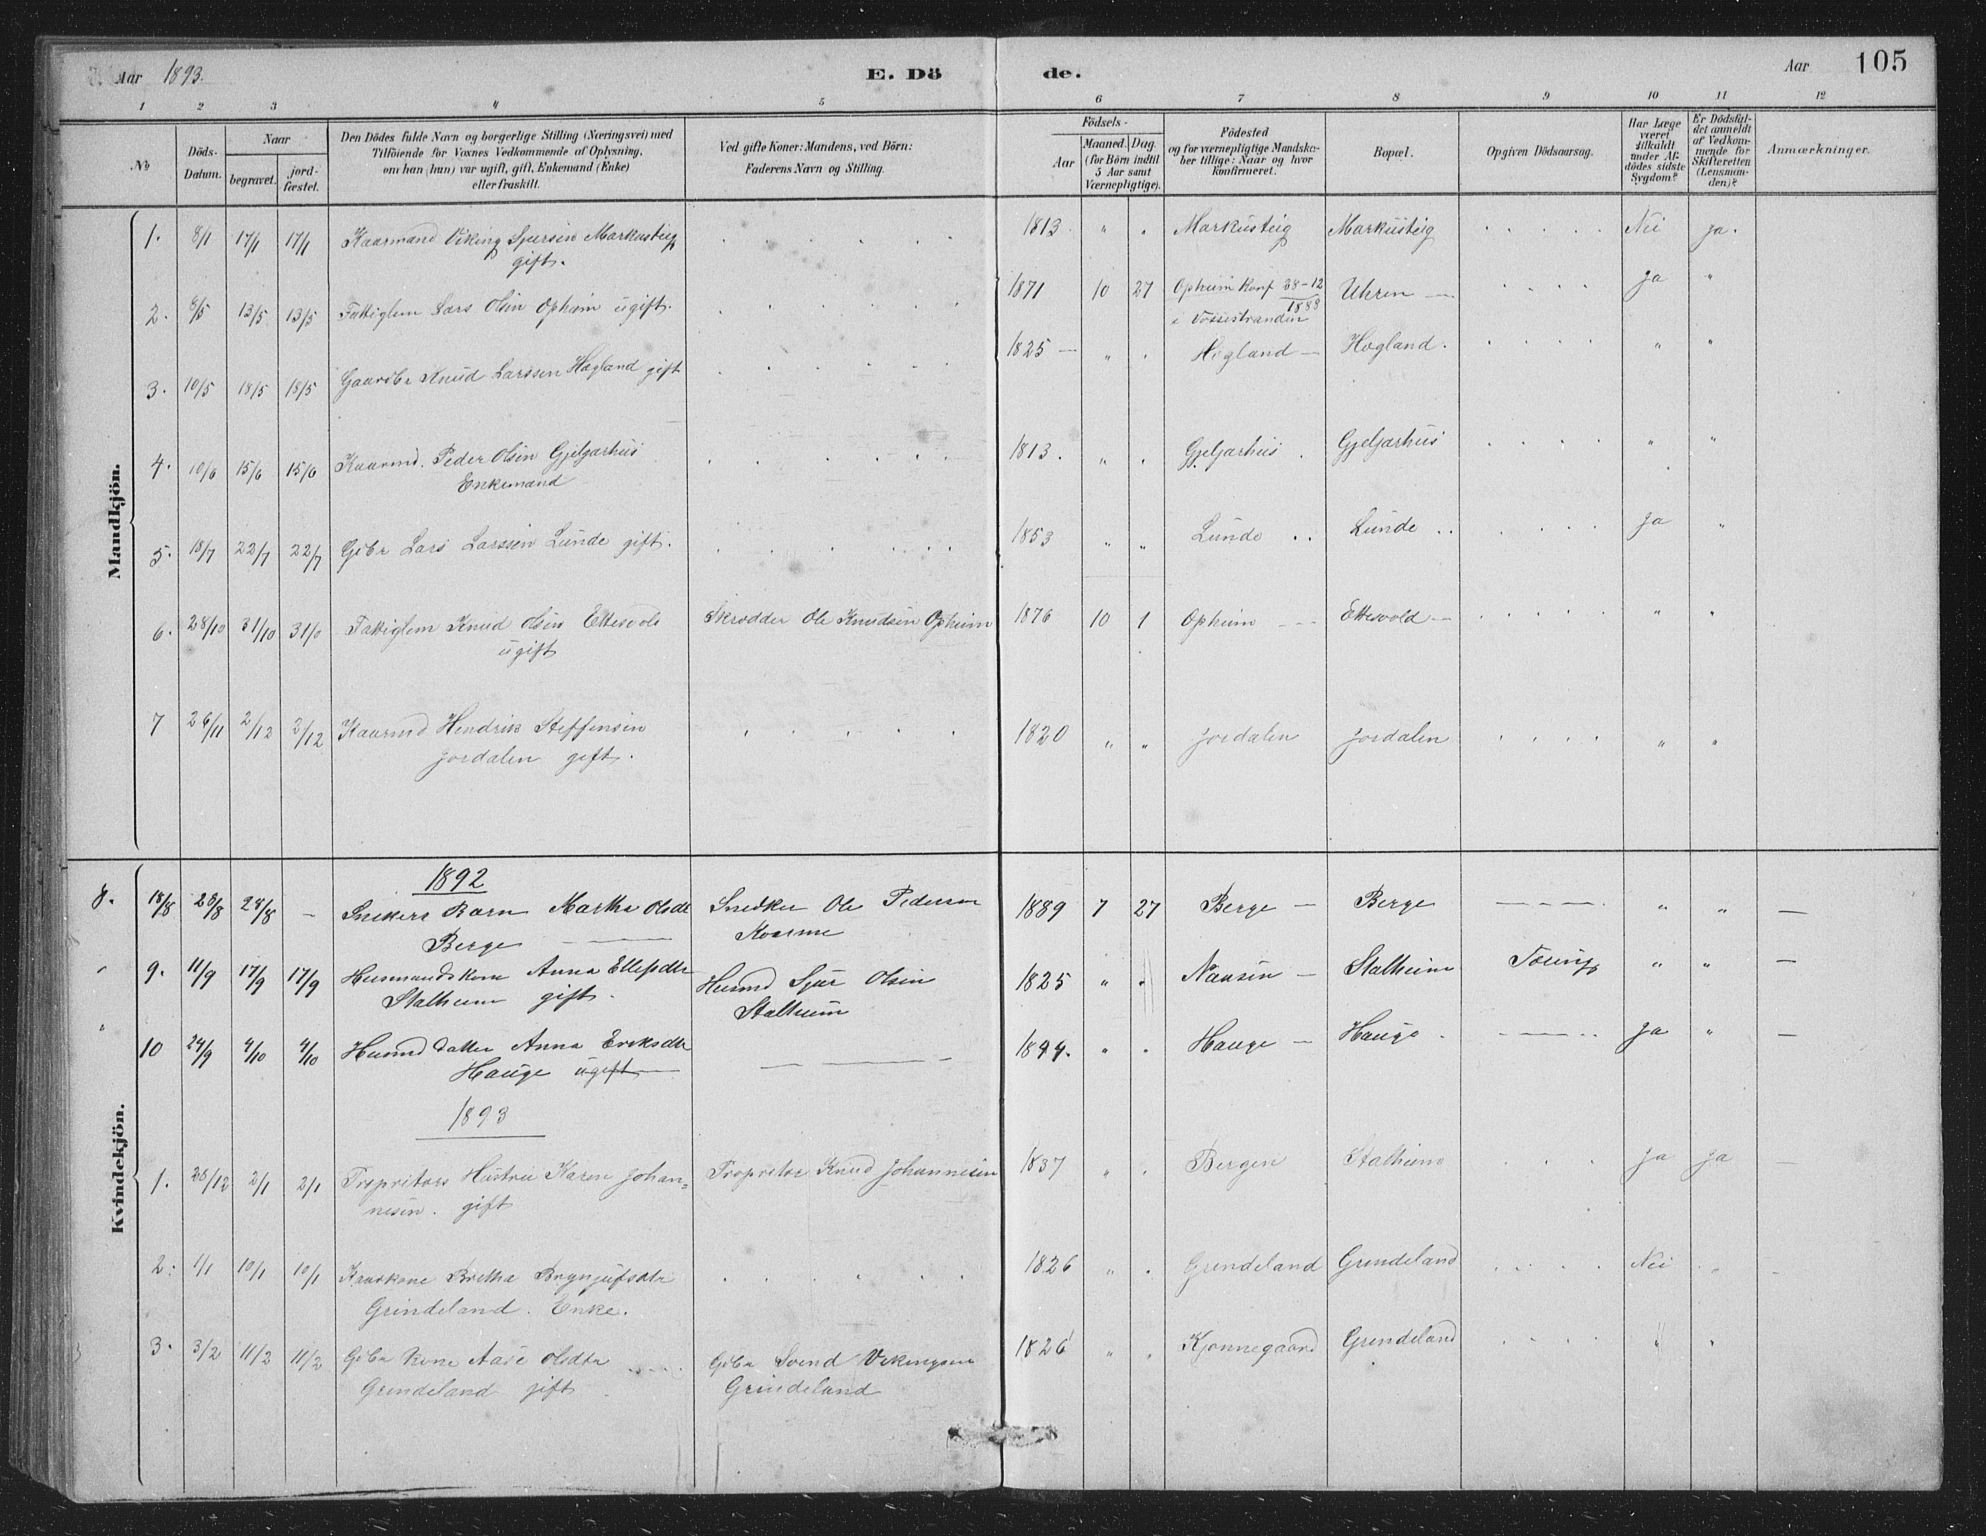 Aar 1893. E. Dö de. Aar 105
1 2 3 4 5 6 7 8 9 10 11 12
No
Döds-Datum.
Naar
begravet.
jordfæstet.
Den Dödes fulde Navn og borgerlige Stilling (Næringsvei) med
Tilföiende for Voxnes Vedkommende af Oplysning,
om han (hun) var ugift, gift, Enkemand (Enke)
eller fraskilt.
Ved gifte Koner: Mandens, ved Börn:
Faderens Navn og Stilling.
Födsels-
Aar
Maaned. Dag.
(for Börn indtil
5 Aar samt
Værnepligtige).
Födested
og for værnepligtige Mandskaber tillige: Naar og hvor
konfirmeret.
Bopæl.
Opgiven Dödsaarsag.
Har Læge
været
tilkaldt
under Afdödes sidste
Sygdom?
Er Dödsfaldet anmeldt
af Vedkommende for
Skifteretten
(Lensmanden)?
Anmærkninger.
Mandkjön.
1. 8/1 17/1 17/1 Kaarmand Viking Sjursen Markusteig 1813 " " Markusteig Markusteig Nei ja.
gift.
2. 8/5 13/5 13/5 Fattiglem Lars Olsen Opheim ugift. 1871 10 27 Opheim Konf 28-12 Uhren Ja "
1888
i Vossestranden
3. 10/5 18/5 18/5 Gaardbr Knud Larssen Hogland gift 1825 " " Hogland Hogland. " "
4. 10/6 15/6 15/6 Kaarmd. Peder Olsen Gjelgarhus 1813. " " Gjelgarhus Gjelgarhus " "
Enkemand
5. 18/7 22/7 22/7 Gdbr Lars Larssen Lunde gift. 1853 " " Lunde Lunde Ja "
6. 28/10 31/10 31/0 Fattiglem Knud Olsen Ettesvold Skrædder Ole Knudsen Opheim 1876 10 1 Opheim Ettesvold " "
ugift
7 26/11 2/12 2/12 Kaarmd Hendrik Steffensen 1820 " " Jordalen Jordalen " "
Jordalen gift.
Kvindekjön.
1892
8. 18/8 28/8 28/8 — Snekers Barn Martha Olsdtr Snedker Ole Pedersen 1889 7 27 Berge Berge " " —
Berge Kvarme
9. 11/9 17/9 17/9 Husmandskone Anna Ellefsdtr Husmd Sjur Olsen 1825 " " Naasen Stalheim Tæring " " —
Stalheim gift. Stalheim
10 24/9 4/10 4/10 Husmd datter Anna Eriksdtr 1844. " " Hauge Hauge. Ja " —
Hauge ugift
1893
1. 28/12 2/1 2/1 Propritærs Hustru Karen Johan= Propritær Knud Johannesen 1837 " " Bergen Stalheim Ja Ja —
nesen. gift
2. 1/1 10/1 10/1 Kaarkone Britha Brynjulfsdtr 1826 " " Grindeland Grindeland Nei "
Grindeland. Enke.
3. 3/2 11/2 11/2 Gdbr Kone Aase Olsdtr Gdbr Svend Vikingsen 1826 " " Kjonnegaard Grindeland " "
Grindeland gift Grindeland